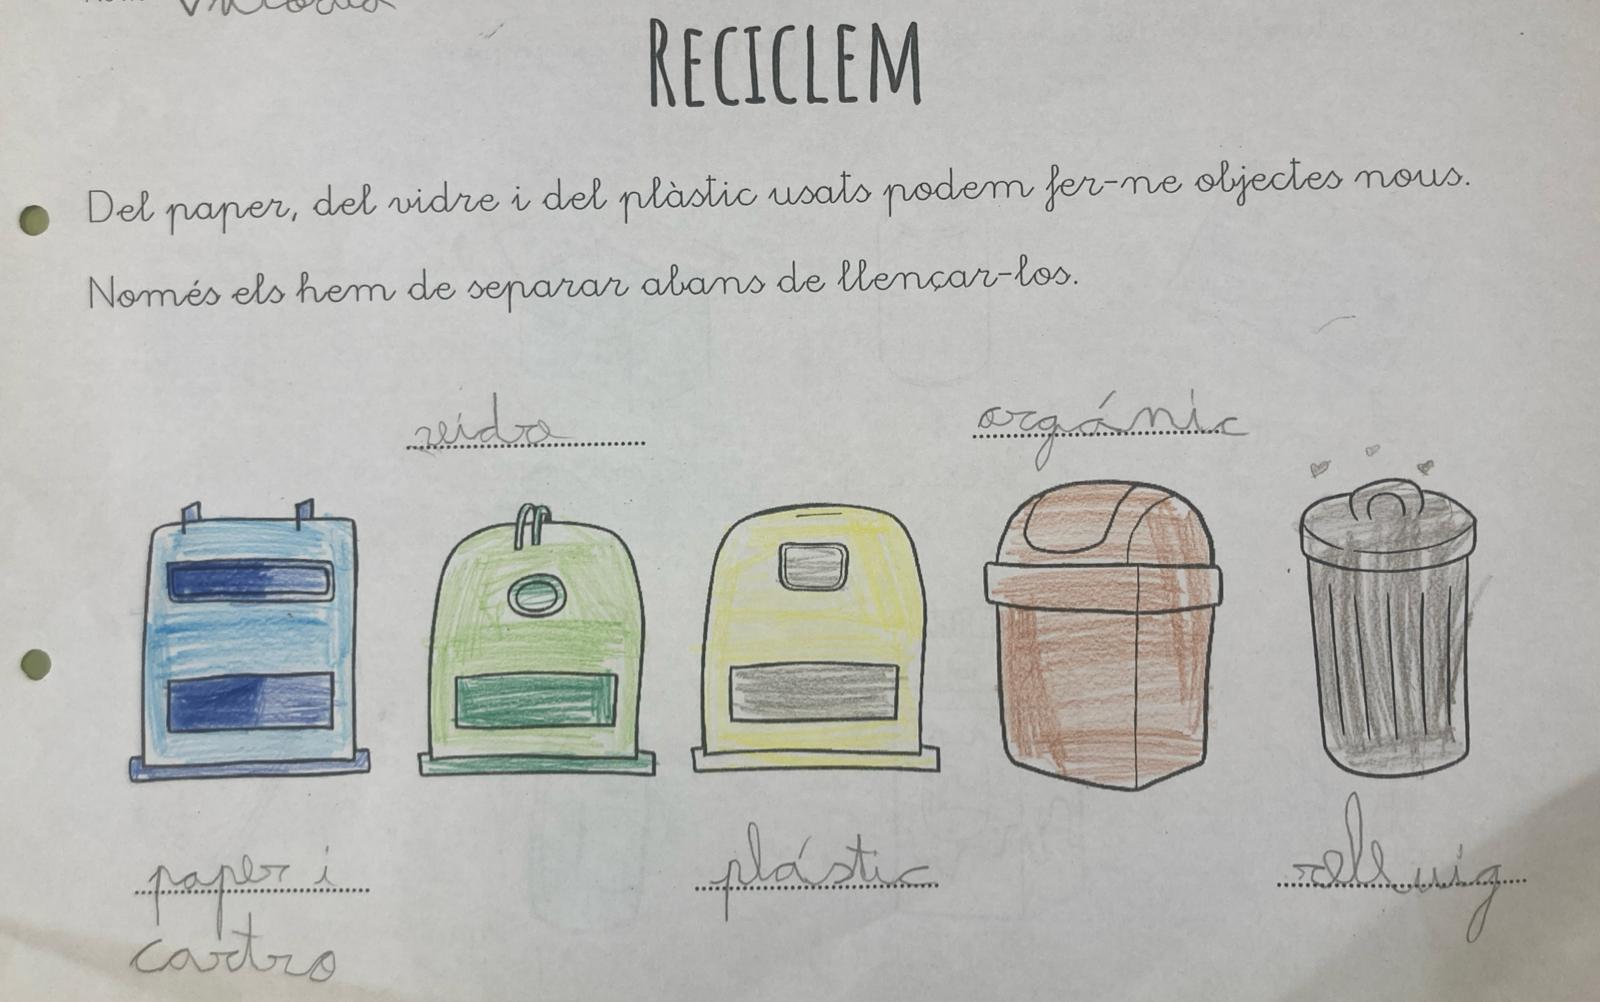 RECICLEM
Del paper, del vidre i del plàstic usats podem fer-ne objectes nous.
Només els hem de separar abans de llençar-los.
vidre
orgánic
paper i
cartro
plástic
rebuig